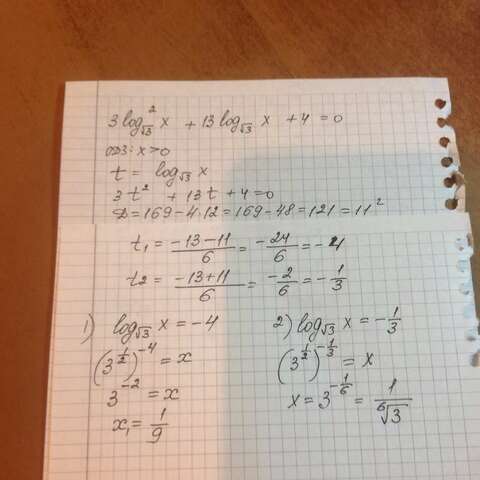 3 log²_√3 x + 13 log_√3 x + 4 = 0
ОДЗ: x > 0
t = log_√3 x
3t² + 13t + 4 = 0
D = 169 - 4·12 = 169 - 48 = 121 = 11²
t₁ = (-13-11)/6 = -24/6 = -4
t₂ = (-13+11)/6 = -2/6 = -1/3
1) log_√3 x = -4
(3^(1/2))^(-4) = x
3^(-2) = x
x₁ = 1/9
2) log_√3 x = -1/3
(3^(1/2))^(-1/3) = x
x = 3^(-1/6) = 1/⁶√3